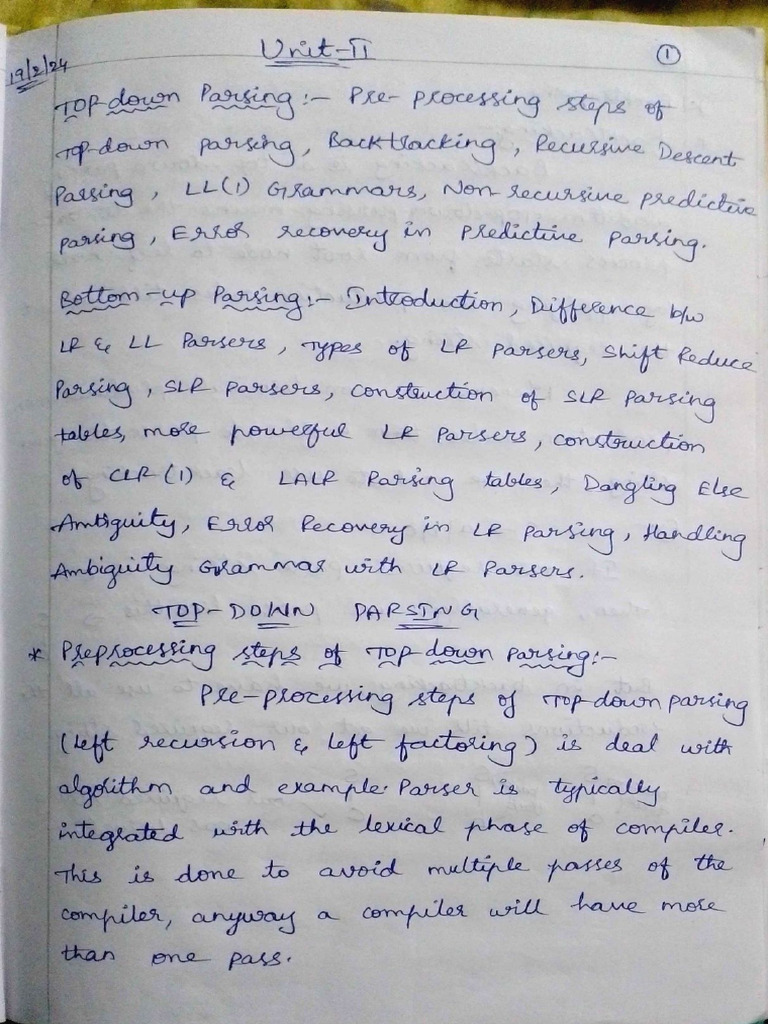 Unit-II
①
19/2/24
Top down Parsing :- Pre-processing steps of
Top-down parsing, Backtracking, Recursive Descent
Parsing, LL(1) Grammars, Non-recursive predictive
parsing, Error recovery in predictive parsing.
Bottom-up Parsing :- Introduction, Difference b/w
LR & LL Parsers, Types of LR parsers, Shift Reduce
Parsing, SLR parsers, construction of SLR parsing
tables, more powerful LR parsers, construction
of CLR(1) & LALR Parsing tables, Dangling Else
Ambiguity, Error Recovery in LR parsing, Handling
Ambiguity Grammar with LR parsers.
TOP-DOWN PARSING
* Preprocessing steps of Top down parsing:-
Pre-processing steps of Top down parsing
(left recursion & left factoring) is deal with
algorithm and example. Parser is typically
integrated with the lexical phase of compiler.
This is done to avoid multiple passes of the
compiler, anyway a compiler will have more
than one pass.